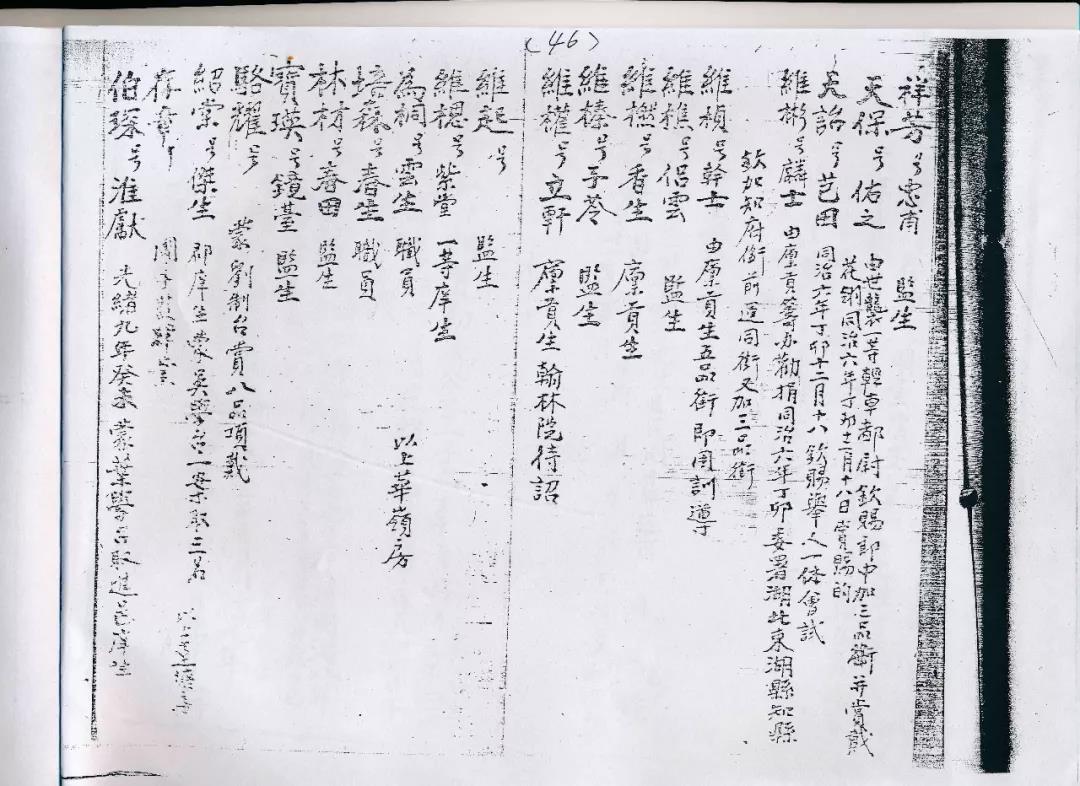 (46)
祥芳号忠甫 監生
天保号佑之 由世襲一等輕車都尉欽賜郎中加三品銜并賞戴
花翎同治六年丁卯十二月十八日賞賜的
天詒号芑田 同治六年丁卯十二月十八欽賜舉人一体會試
維彬号麟士 由廩貢籌办勸捐同治六年丁卯委署湖北東湖縣知縣
欽加知府銜前運同銜又加三品銜
維楨号幹士 由廩貢生五品銜即用訓導
維樵号侣雲 監生
維橪号香生 廩貢生
維榛号子苓 監生
維權号立軒 廩貢生翰林院待詔
維起号 監生
維楒号紫堂 一等庠生
為桐号雲生 職員 以上華嶺房
培森号春生 職員
林材号春田 監生
寶瑛号鏡臺 監生
駱耀号 蒙劉制台賞八品項戴
紹棠号傑生 郡庠生蒙吳學台一案取三名
存章
伯琛号淮獻 光緒九年癸未蒙葉學台取進邑庠生